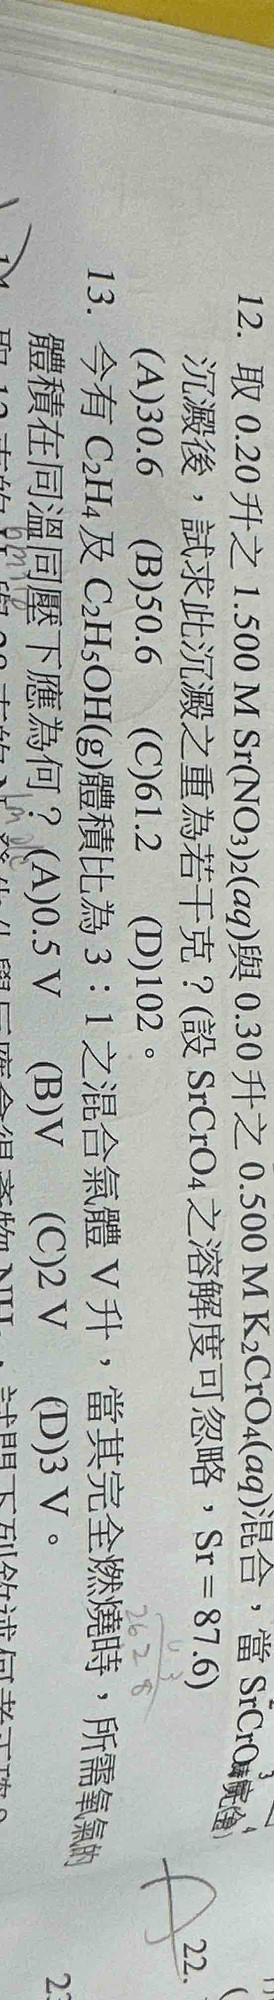 12. 取 0.20 升之 1.500 M Sr(NO₃)₂(aq)與 0.30 升之 0.500 M K₂CrO₄(aq)混合，當 SrCrO₄
沉澱後，試求此沉澱之重為若干克？(設 SrCrO₄ 之溶解度可忽略，Sr = 87.6)
(A)30.6 (B)50.6 (C)61.2 (D)102。
13. 今有 C₂H₄ 及 C₂H₅OH(g)體積比為 3：1 之混合氣體 V 升，當其完全燃燒時，所需氧氣的
體積在同溫同壓下應為何？(A)0.5 V (B)V (C)2 V (D)3 V。
22.